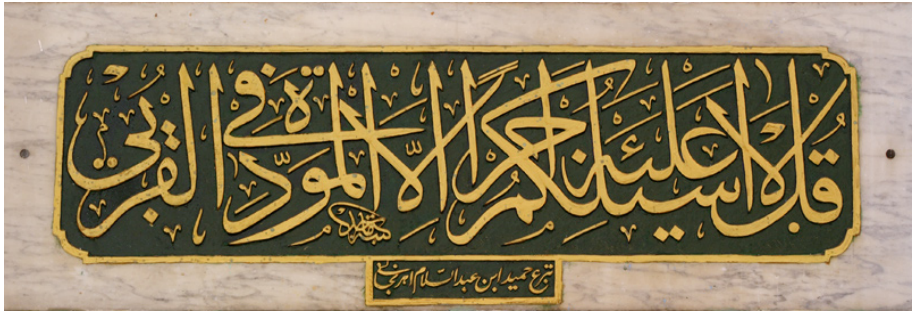 قل لا اسئلكم عليه اجرًا الّا المودّة في القربى
تبرع حميد ابن عبدالسلام